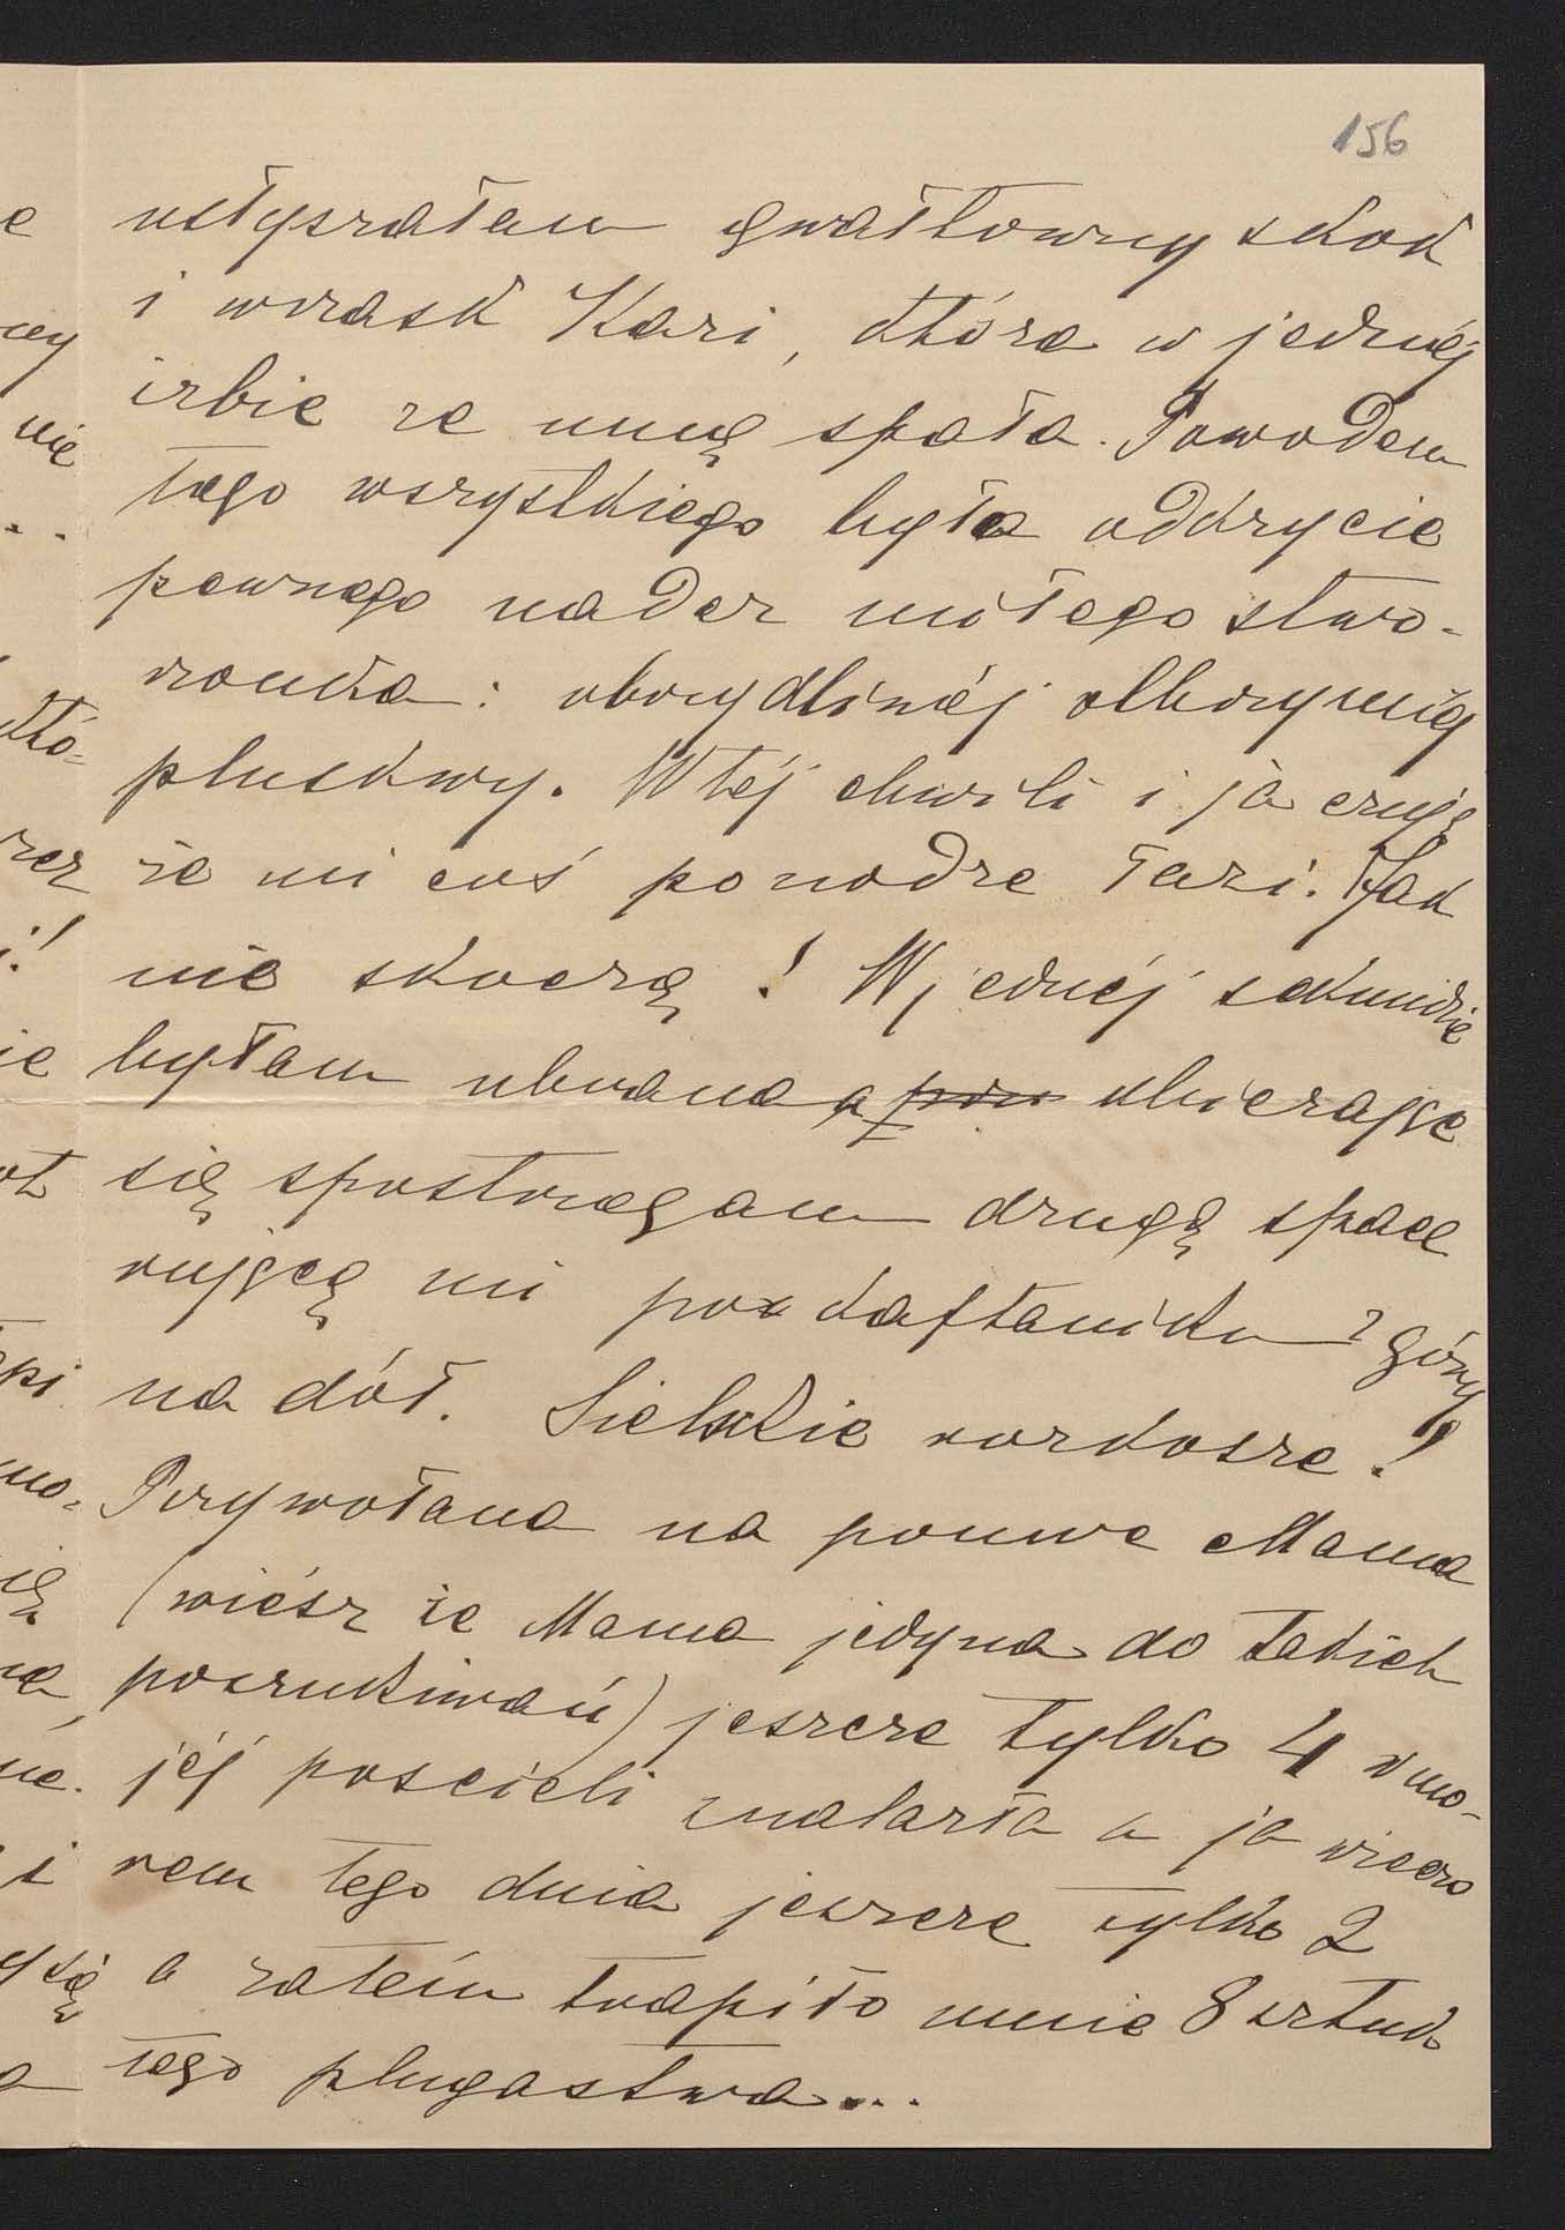 156
usłyszałam gwałtowny skok
i wrzask Kazi, która w jednéj
izbie ze mną spała. Powodem
tego wszystkiego było odkrycie
pewnego nader miłego stwo-
rzonka: obrzydliwéj olbrzymiéj
pluskwy. W téj chwili i ja czuję
że mi coś po nodze łazi. Jak
nie skoczę! W jednéj sekundzie
byłam ubrana a ubierając
się spostrzegam drugą space
rującą mi po kaftaniku z góry
na dół. Sielskie rozkosze!
Przywołana na pomoc Mama
(wiész że Mama jedyna do takich
poszukiwań) jeszcze tylko 4 w mo-
jéj poscieli znalazła a ja wieczo
rem tego dnia jeszcze tylko 2
a zatém trapiło mnie 8 sztuk
tego plugastwa...